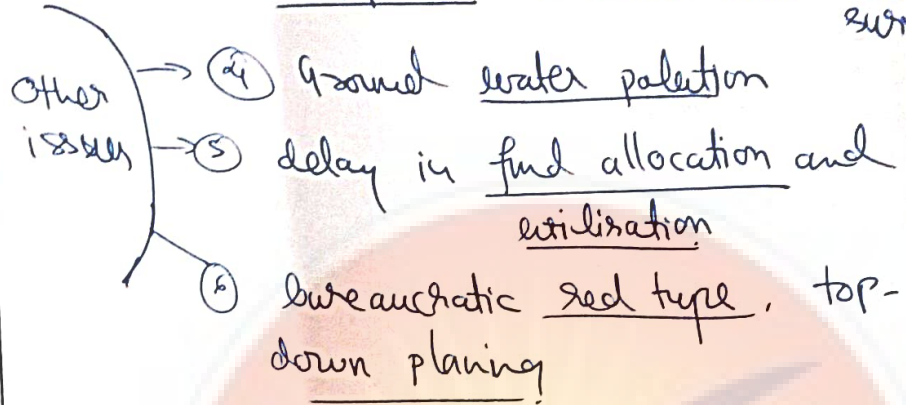 sur
Other issues
→ ④ Ground water palution
→ ⑤ delay in fund allocation and
utilisation
⑥ bureaucratic red type, top-
down planing